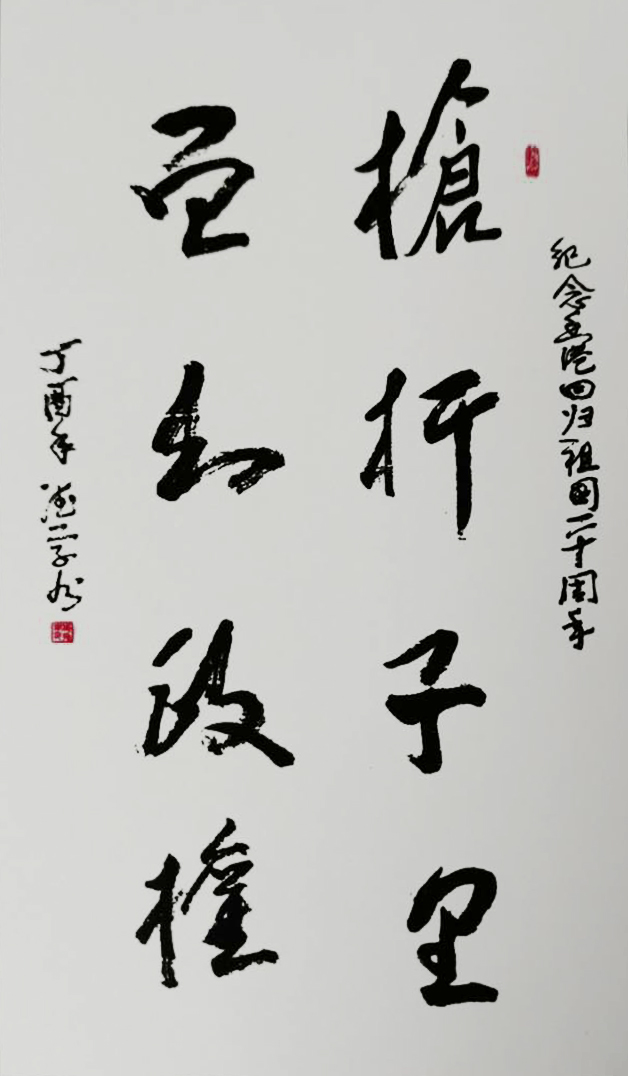 纪念香港回归祖国二十周年
槍杆子里
面出政權
丁酉年